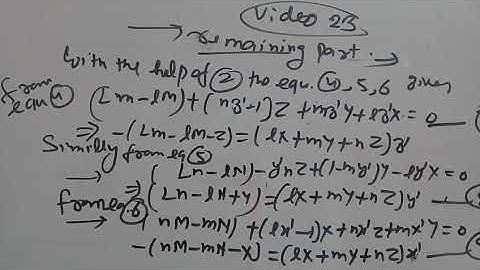 Video 23
→ remaining part. →
with the help of ② the equ. ④, 5, 6 gives
from equ ④
(Lm-lM)+(nz'-1)Z+mz'Y+lz'X=0
⇒ -(Lm-lM-Z)=(lX+mY+nZ)z'
Similly from eq ⑤
→ (Ln-lN)-y'nZ+(1-my')Y-ly'X=0
⇒ (Ln-lN+Y)=(lX+mY+nZ)y'
from eq. ⑥
→ (nM-mN)+(lx'-1)X+nx'Z+mx'Y=0
-(nM-mN-X)=(lX+mY+nZ)x'